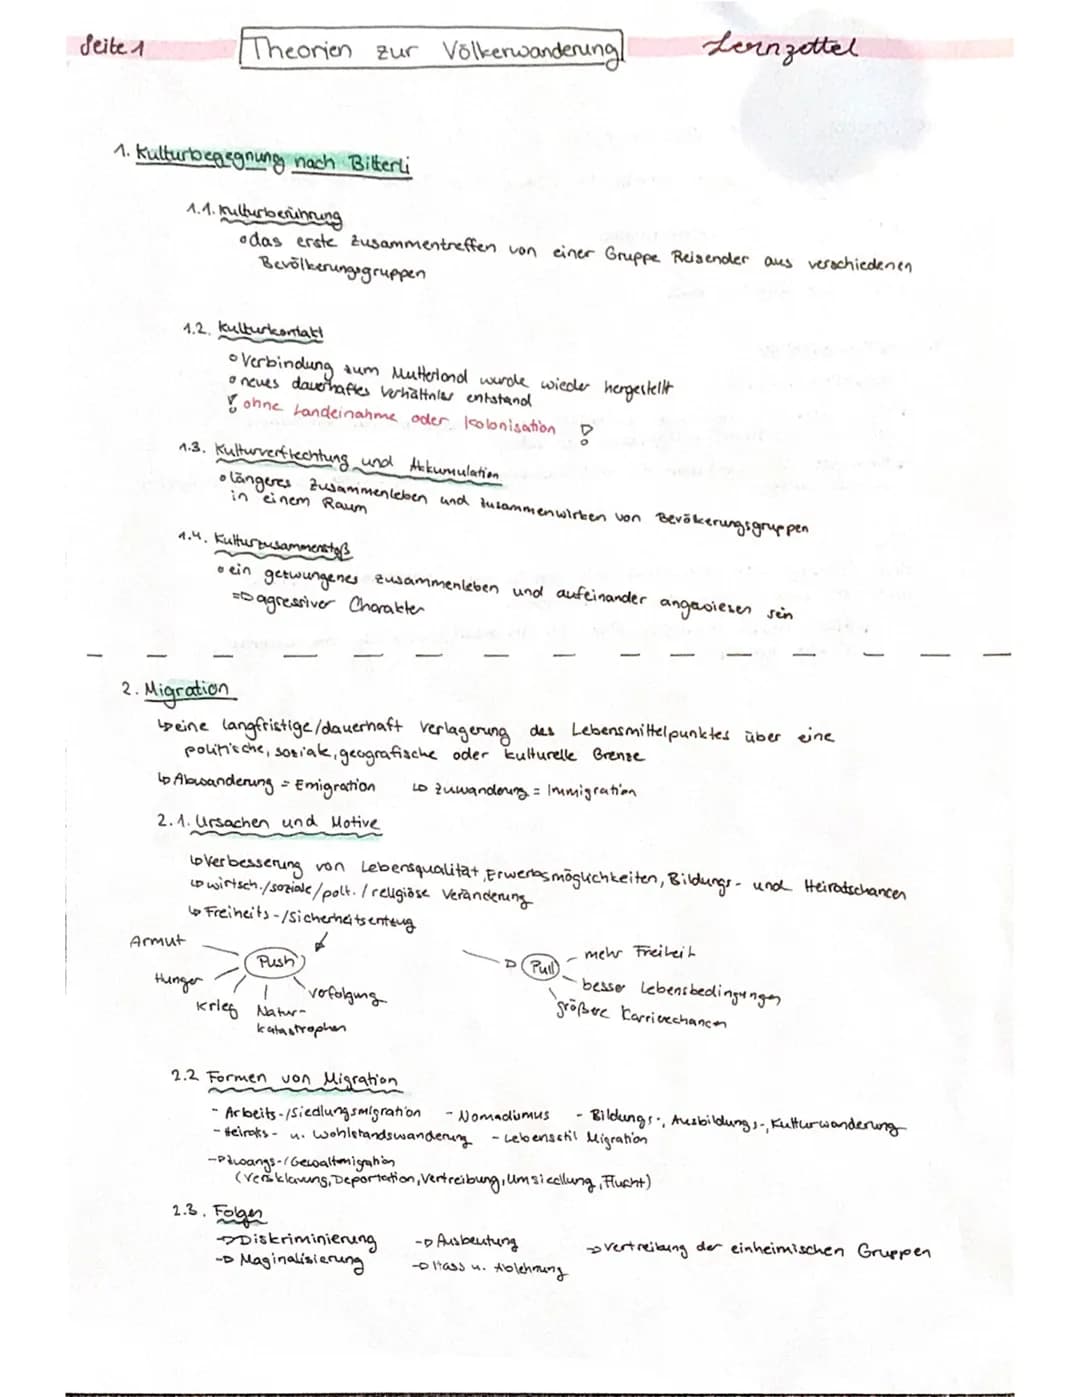 Seite 1 Theorien zur Völkerwanderung Lernzettel
1. Kulturbegegnung nach Bitterli
1.1. Kulturberührung
das erste Zusammentreffen von einer Gruppe Reisender aus verschiedenen
Bevölkerungsgruppen
1.2. Kulturkontakt
Verbindung zum Mutterland wurde wieder hergestellt
neues dauerhaftes Verhältniss entstand
! ohne Landeinahme oder Kolonisation !
1.3. Kulturverflechtung und Akkumulation
längeres Zusammenleben und zusammenwirken von Bevölkerungsgruppen
in einem Raum
1.4. Kulturzusammenstoß
ein gezwungenes zusammenleben und aufeinander angewiesen sein
=> agressiver Charakter
2. Migration
↳ eine langfristige/dauerhaft Verlagerung des Lebensmittelpunktes über eine
politische, soziale, geografische oder kulturelle Grenze
↳ Abwanderung = Emigration ↳ Zuwanderung = Immigration
2.1. Ursachen und Motive
↳ Verbesserung von Lebensqualität, Erwerbsmöglichkeiten, Bildungs- und Heiratschancen
↳ wirtsch./soziale/polt./religiöse Veränderung
↳ Freiheits-/Sicherheitsentzug
Armut
Push
Hunger
Krieg
Natur-
katastrophen
Vefolgung
→ Pull
mehr Freiheit
besser Lebensbedingungen
größere Karrierechancen
2.2 Formen von Migration
- Arbeits-/Siedlungsmigration - Nomadismus - Bildungs-, Ausbildungs-, Kulturwanderung
- Heirats- u. Wohlstandswanderung - Lebensstil Migration
- Zwangs-/Gewaltmigration
(Versklavung, Deportation, Vertreibung, Umsiedlung, Flucht)
2.3. Folgen
→ Diskriminierung → Ausbeutung → Vertreibung der einheimischen Gruppen
→ Maginalisierung → Hass u. Ablehnung